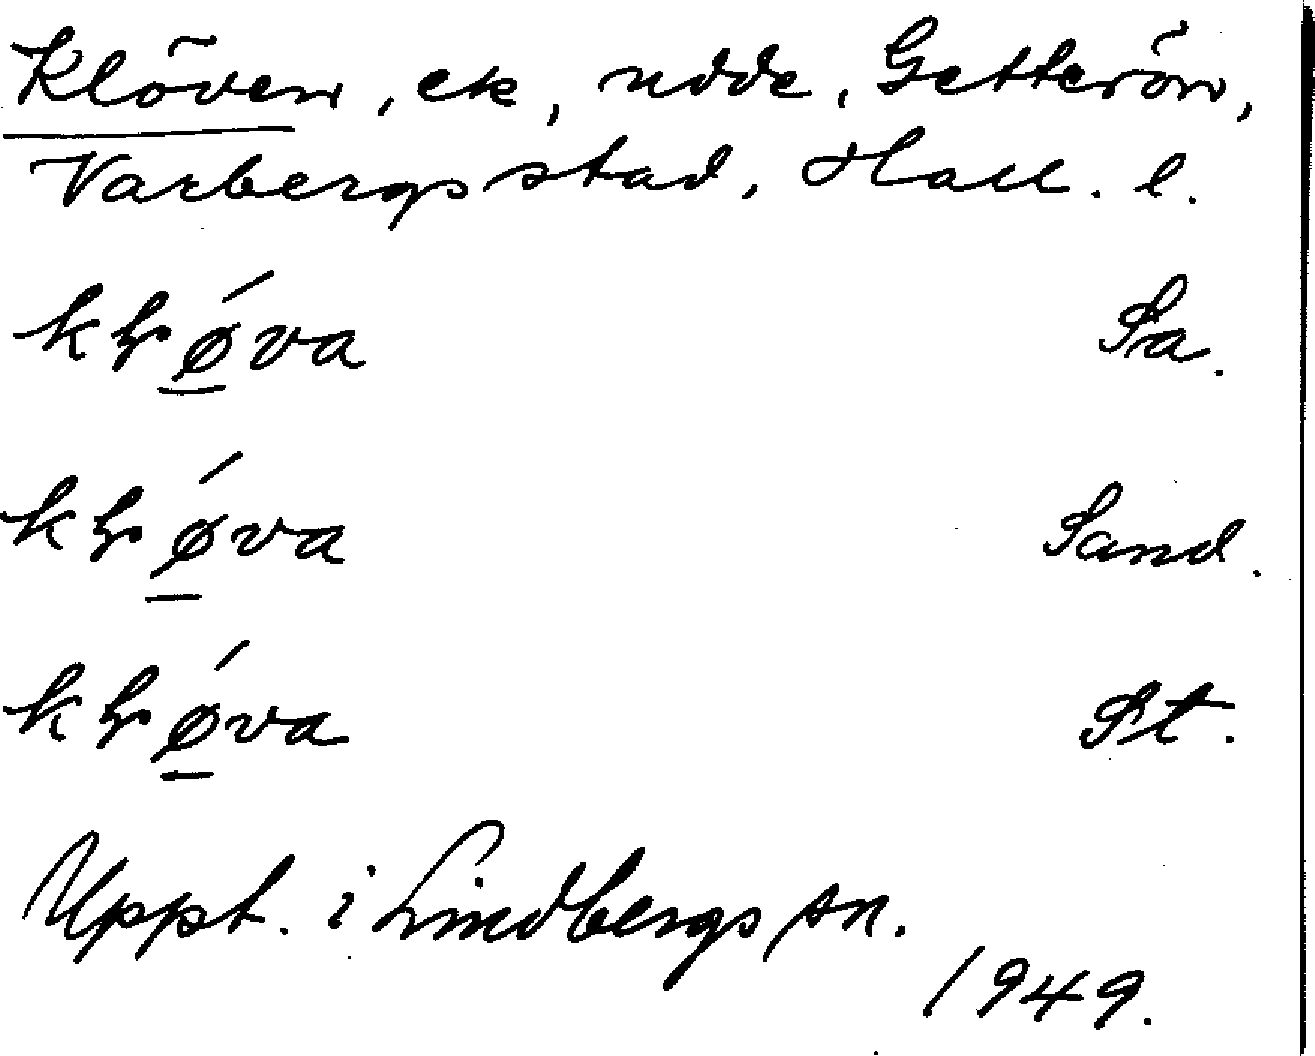 Klöven, ek, udde, Getterön,
Varbergs stad, Hall. l.
kḷǿ̱va Sa.
kḷǿ̱va Sand.
kḷǿ̱va St.
Uppt. i Lindbergs sn.
1949.